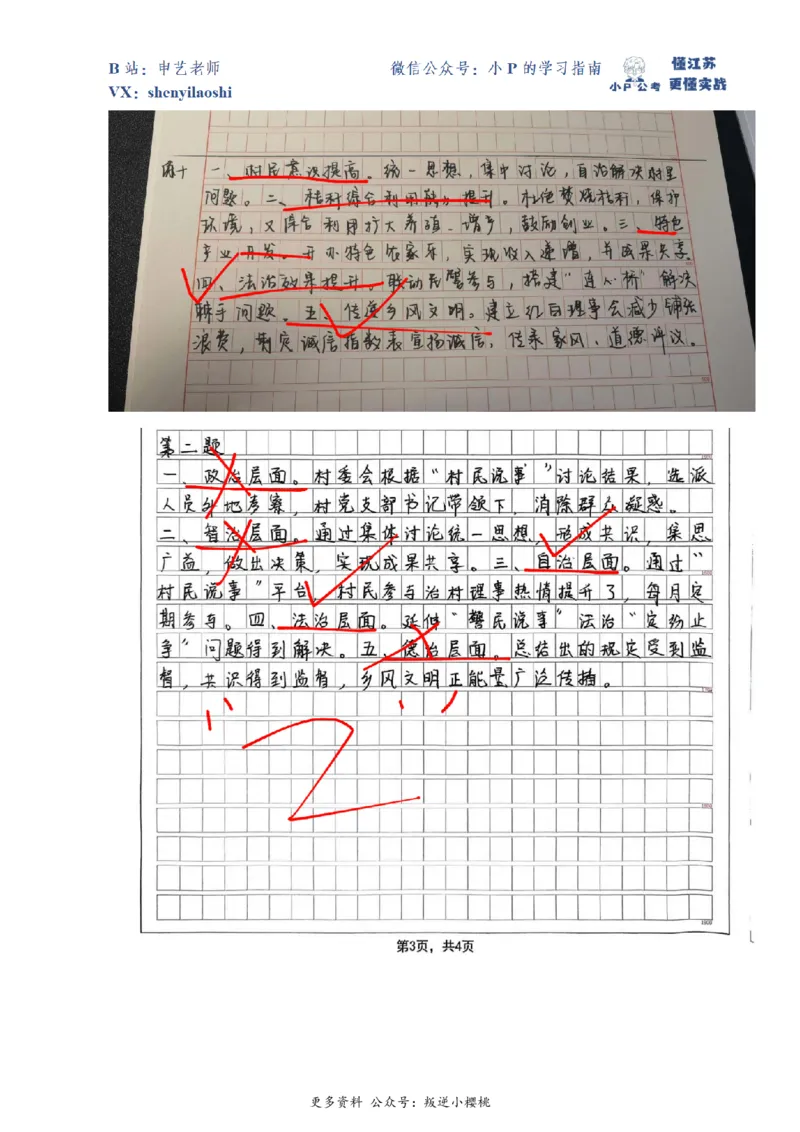 B 站：申艺老师
微信公众号：小 P 的学习指南
懂江苏
小P公考 更懂实战
VX：shenyilaoshi
一、村民意识提高。统一思想，集中讨论，自治解决村里
问题。二、秸秆综合利用能力提升。杜绝焚烧秸秆，保护
环境，又得合利用扩大养殖、增产，鼓励创业。三、特色
产业开发。开办特色农家乐，实现收入递增，并成果共享
四、法治效果提升。联动民警参与，搭建“连心桥”解决
棘手问题。五、传递乡风文明。建立红白理事会减少铺张
浪费，制定诚信指数表宣扬诚信，传承家风、道德评议。
第二题
一、政治层面。村委会根据“村民说事”讨论结果，选派
人员外地考察，村党支部书记带领下，消除群众疑惑。
二、智治层面。通过集体讨论统一思想，形成共识，集思
广益，做出决策，实现成果共享。三、自治层面。通过“
村民说事”平台，村民参与治村理事热情提升了，每月定
期参与。四、法治层面。延伸“警民说事”法治“定纷止
争”问题得到解决。五、德治层面。总结出的规定受到监
督，共识得到监督，乡风文明正能量广泛传播。
2
第3页，共4页
更多资料 公众号：叛逆小樱桃